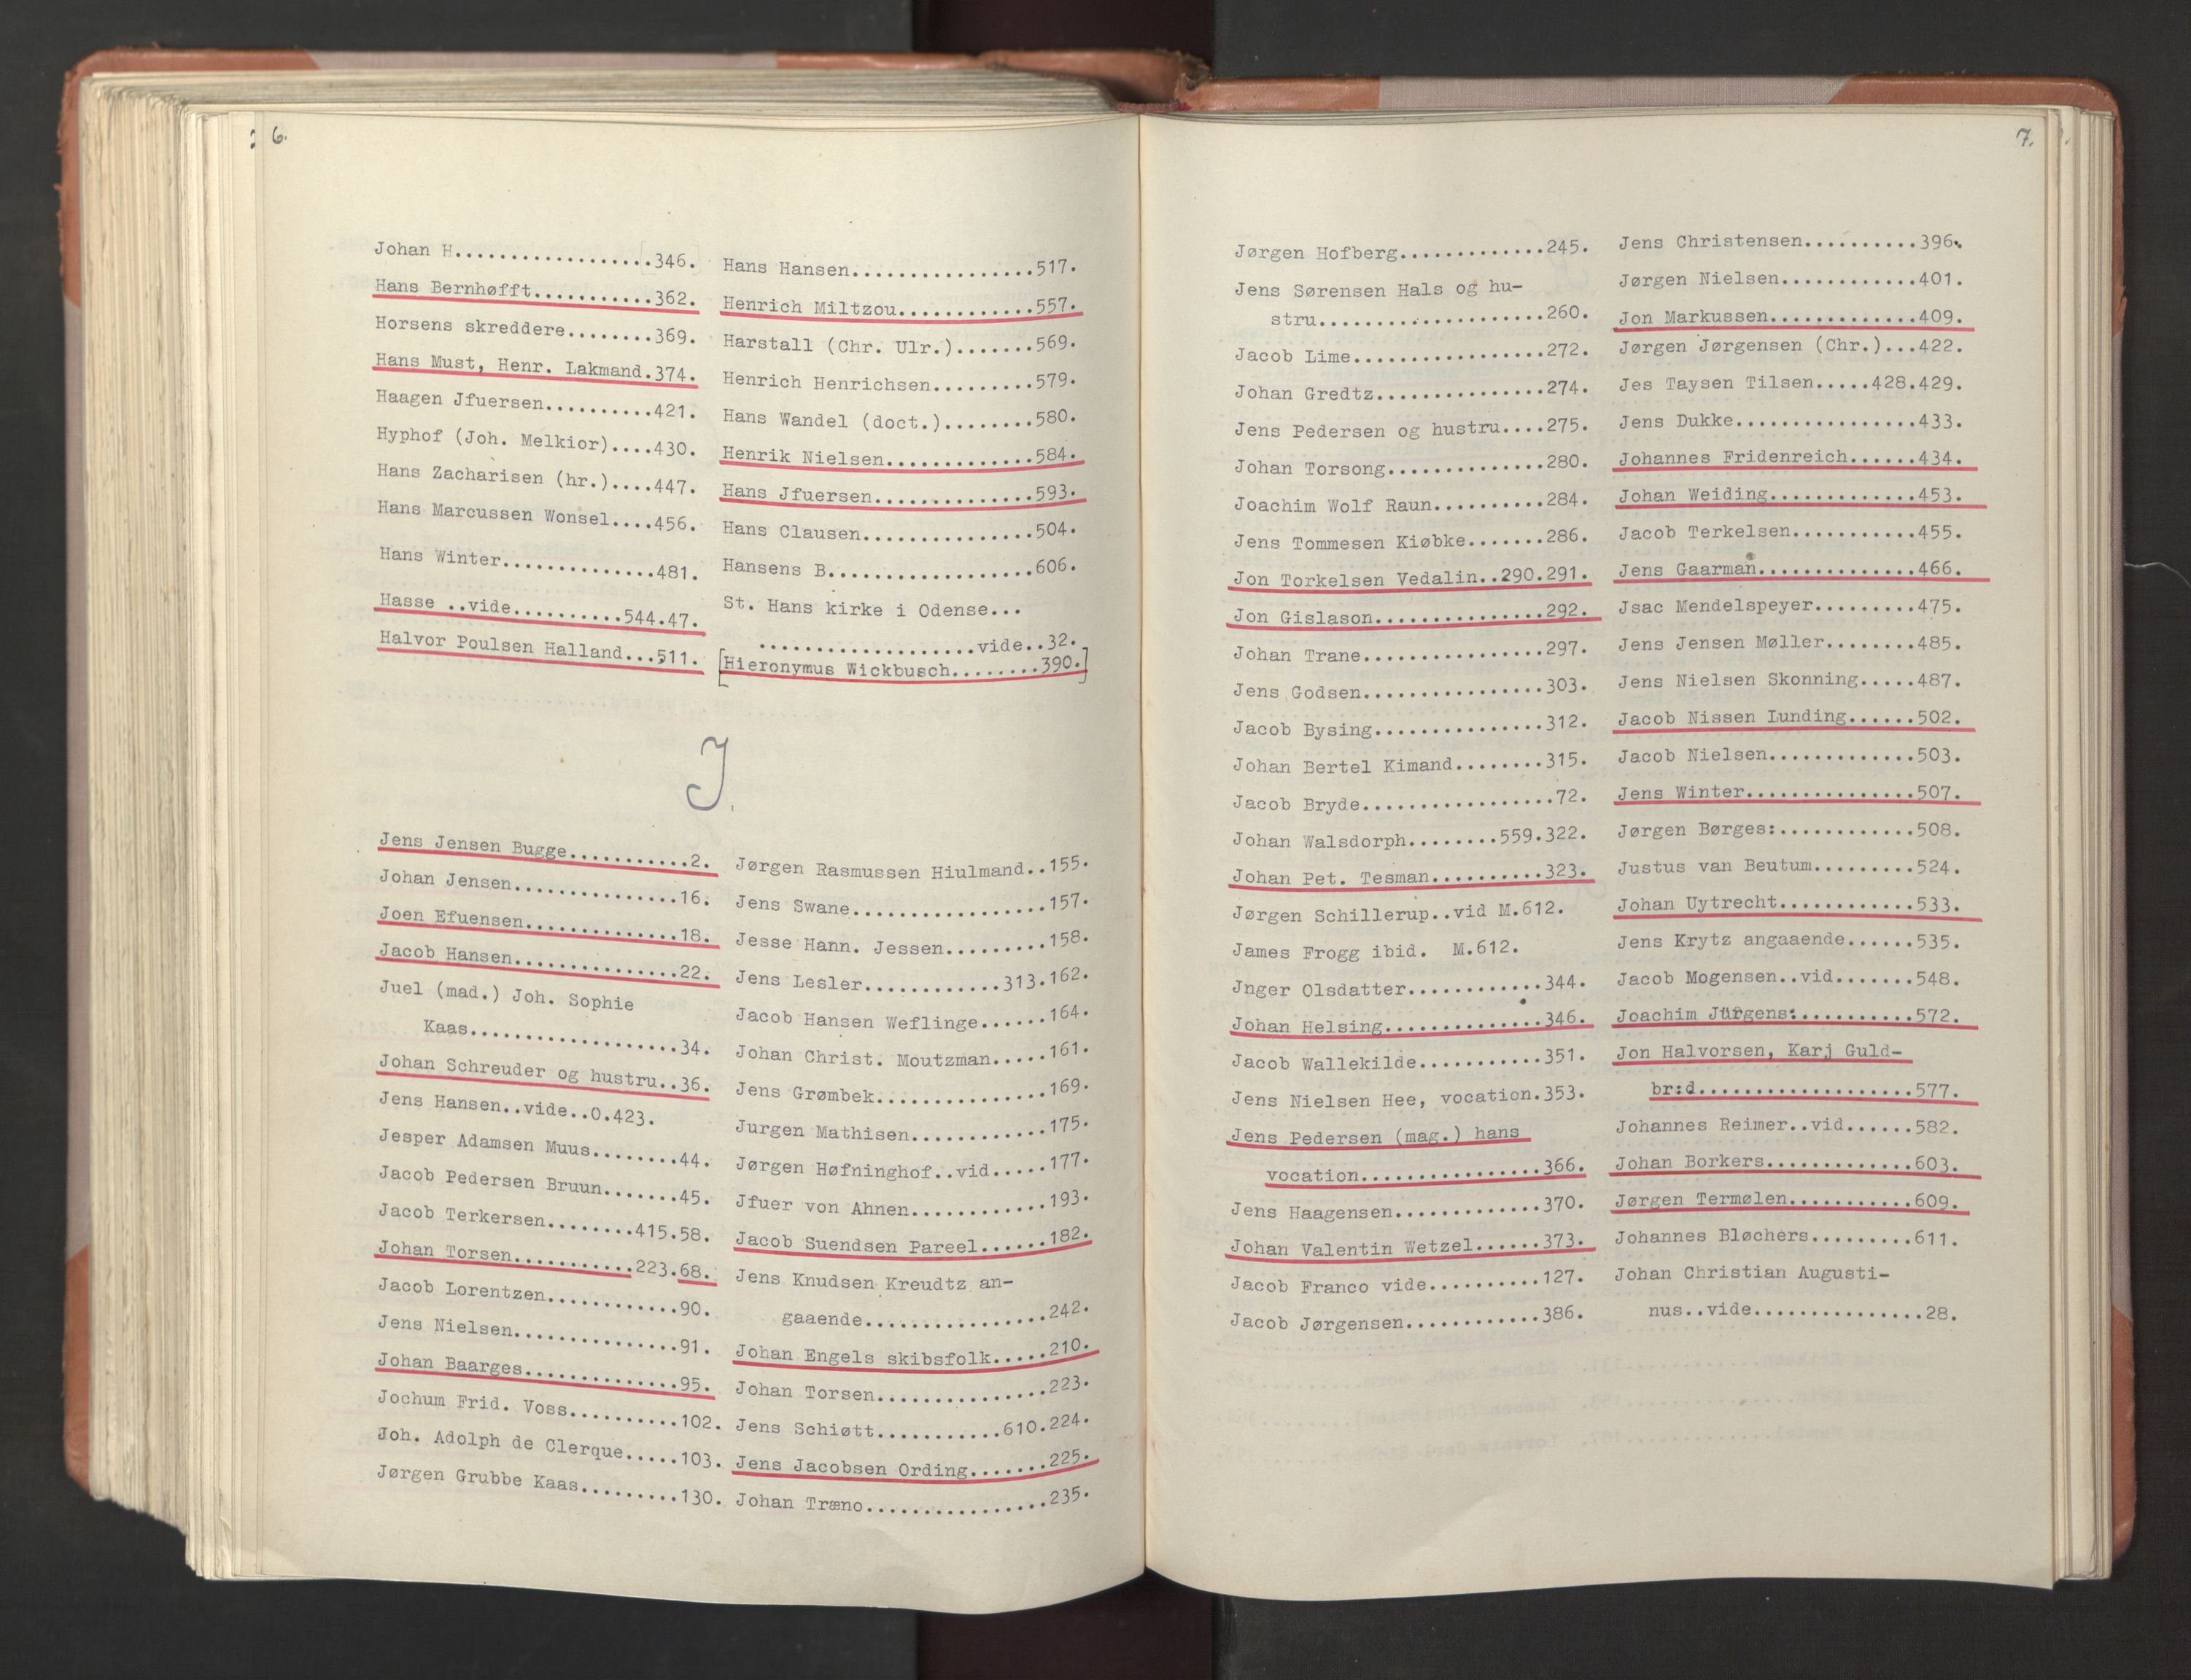 6.
Johan H..................346.
Hans Bernhøfft...........362.
Horsens skreddere........369.
Hans Must, Henr. Lakmand.374.
Haagen Jfuersen..........421.
Hyphof (Joh. Melkior)....430.
Hans Zacharisen (hr.)....447.
Hans Marcussen Wonsel....456.
Hans Winter..............481.
Hasse ..vide..........544.47.
Halvor Poulsen Halland...511.
Hans Hansen................517.
Henrich Miltzou............557.
Harstall (Chr. Ulr.).......569.
Henrich Henrichsen.........579.
Hans Wandel (doct.)........580.
Henrik Nielsen.............584.
Hans Jfuersen..............593.
Hans Clausen...............504.
Hansens B..................606.
St. Hans kirke i Odense...
...................vide..32.
[Hieronymus Wickbusch........390.]
J.
Jens Jensen Bugge...........2.
Johan Jensen...............16.
Joen Efuensen..............18.
Jacob Hansen...............22.
Juel (mad.) Joh. Sophie
Kaas...................34.
Johan Schreuder og hustru..36.
Jens Hansen..vide..O.423.
Jesper Adamsen Muus........44.
Jacob Pedersen Bruun.......45.
Jacob Terkersen........415.58.
Johan Torsen...........223.68.
Jacob Lorentzen............90.
Jens Nielsen...............91.
Johan Baarges..............95.
Jochum Frid. Voss..........102.
Joh. Adolph de Clerque.....103.
Jørgen Grubbe Kaas.........130.
Jørgen Rasmussen Hiulmand..155.
Jens Swane.................157.
Jesse Hann. Jessen.........158.
Jens Lesler............313.162.
Jacob Hansen Weflinge......164.
Johan Christ. Moutzman.....161.
Jens Grømbek...............169.
Jurgen Mathisen............175.
Jørgen Høfninghof..vid.....177.
Jfuer von Ahnen............193.
Jacob Suendsen Pareel......182.
Jens Knudsen Kreudtz an-
gaaende................242.
Johan Engels skibsfolk.....210.
Johan Torsen...............223.
Jens Schiøtt...........610.224.
Jens Jacobsen Ording.......225.
Johan Træno................235.
7.
Jørgen Hofberg.............245.
Jens Sørensen Hals og hu-
stru....................260.
Jacob Lime.................272.
Johan Gredtz...............274.
Jens Pedersen og hustru....275.
Johan Torsong..............280.
Joachim Wolf Raun..........284.
Jens Tommesen Kiøbke.......286.
Jon Torkelsen Vedalin..290.291.
Jon Gislason...............292.
Johan Trane................297.
Jens Godsen................303.
Jacob Bysing...............312.
Johan Bertel Kimand........315.
Jacob Bryde.................72.
Johan Walsdorph........559.322.
Johan Pet. Tesman..........323.
Jørgen Schillerup..vid M.612.
James Frogg ibid. M.612.
Jnger Olsdatter............344.
Johan Helsing..............346.
Jacob Wallekilde...........351.
Jens Nielsen Hee, vocation.353.
Jens Pedersen (mag.) hans
vocation................366.
Jens Haagensen.............370.
Johan Valentin Wetzel......373.
Jacob Franco vide..........127.
Jacob Jørgensen............386.
Jens Christensen..........396.
Jørgen Nielsen............401.
Jon Markussen.............409.
Jørgen Jørgensen (Chr.)...422.
Jes Taysen Tilsen.....428.429.
Jens Dukke................433.
Johannes Fridenreich......434.
Johan Weiding.............453.
Jacob Terkelsen...........455.
Jens Gaarman..............466.
Jsac Mendelspeyer.........475.
Jens Jensen Møller........485.
Jens Nielsen Skonning.....487.
Jacob Nissen Lunding......502.
Jacob Nielsen.............503.
Jens Winter...............507.
Jørgen Børges:............508.
Justus van Beutum.........524.
Johan Uytrecht............533.
Jens Krytz angaaende......535.
Jacob Mogensen..vid.......548.
Joachim Jürgens:..........572.
Jon Halvorsen, Karj Guld-
br:d...................577.
Johannes Reimer..vid......582.
Johan Borkers.............603.
Jørgen Termølen...........609.
Johannes Bløchers.........611.
Johan Christian Augusti-
nus..vide...............28.